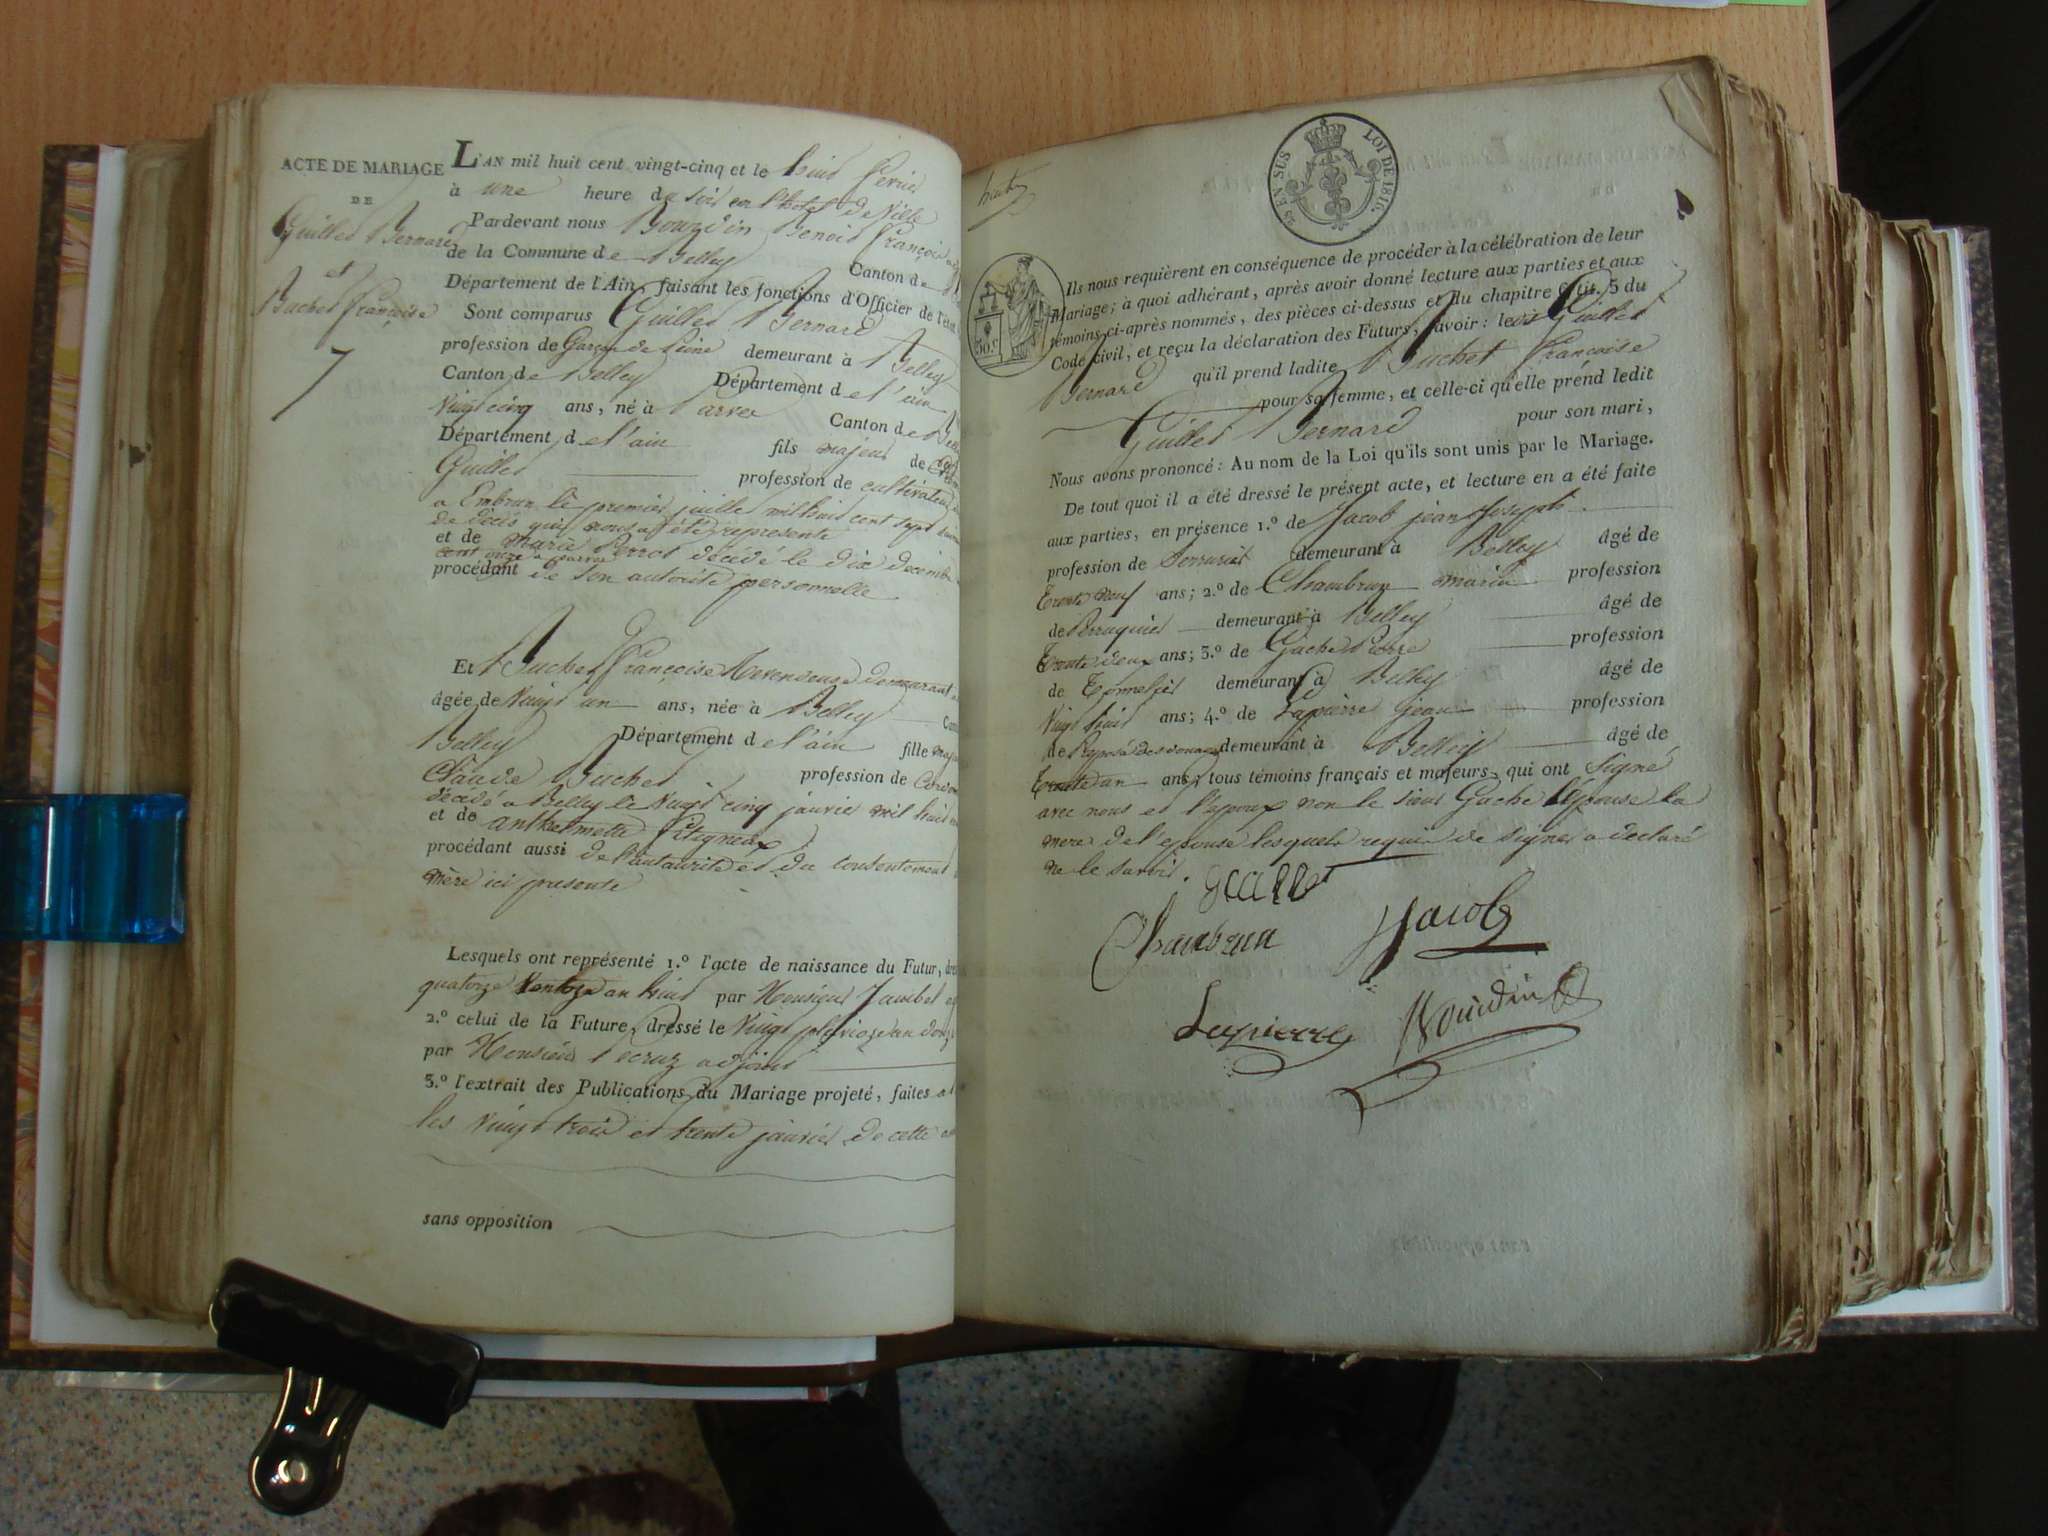 ACTE DE MARIAGE
DE
Guillet Bernard
et
Buchet françoise
7
L'AN mil huit cent vingt-cinq et le huit fevrier
à une heure du soir en l'hotel de Ville
Pardevant nous Bouvdin Benoit françois
de la Commune de Belley Canton de
Département de l'Ain, faisant les fonctions d'Officier de l'état
Sont comparus Guillet Bernard
profession de Garçon de peine demeurant à Belley
Canton de Belley Département de l'ain
Vingt cinq ans, né à Parves Canton de Belley
Département de l'ain fils majeur de
Guillet profession de cultivateur
a Embrun le premier juillet mil huit cent sept suivant
de décés qui nous a été représenté
et de marie Perrot décédé le dix decembre
cent onze a parves
procédant de son autorité personnelle
Et Buchet françoise Revendeuse demeurant a
âgée de Vingt un ans, née à Belley
Belley Département de l'ain fille
Claude Buchet profession de
décédé a Belley le Vingt cinq janvier mil huit
et de anthelmette
procédant aussi de l'autaurité et du consentement
mère ici presente
Lesquels ont représenté 1.º l'acte de naissance du Futur,
quatorze Ventoze an huit par Monsieur
2.º celui de la Future, dressé le Vingt pluvioze an
par Monsieur adjoint
3.º l'extrait des Publications du Mariage projeté, faites a
les Vingt trois et trente janvier de cette
sans opposition
huit
25 EN SUS LOI DE 1816.
50.c
Ils nous requièrent en conséquence de procéder à la célébration de leur
Mariage; à quoi adhérant, après avoir donné lecture aux parties et aux
témoins ci-après nommés, des pièces ci-dessus et du chapitre 6 tit. 5 du
Code civil, et reçu la déclaration des Futurs, savoir: ledit Guillet
Bernard qu'il prend ladite Buchet françoise
pour sa femme, et celle-ci qu'elle prend ledit
Guillet Bernard pour son mari,
Nous avons prononcé: Au nom de la Loi qu'ils sont unis par le Mariage.
De tout quoi il a été dressé le présent acte, et lecture en a été faite
aux parties, en présence 1.º de Jacob jean Joseph
profession de Serrurier demeurant à Belley âgé de
Trente neuf ans; 2.º de Chambrun marin profession
de Perruquier demeurant à Belley âgé de
Trente deux ans; 3.º de Gache Pierre profession
de Tonnelier demeurant à Belley âgé de
Vingt huit ans; 4.º de Lapierre jean profession
de Préposé des douanes demeurant à Belley âgé de
Trente un ans, tous témoins français et majeurs, qui ont signé
avec nous et l'epoux non le sieur Gache l'épouse la
mere de l'epouse lesquels requis de signer a declaré
ne le savoir.
Guillet
Chambrun Jacob
Lapierre